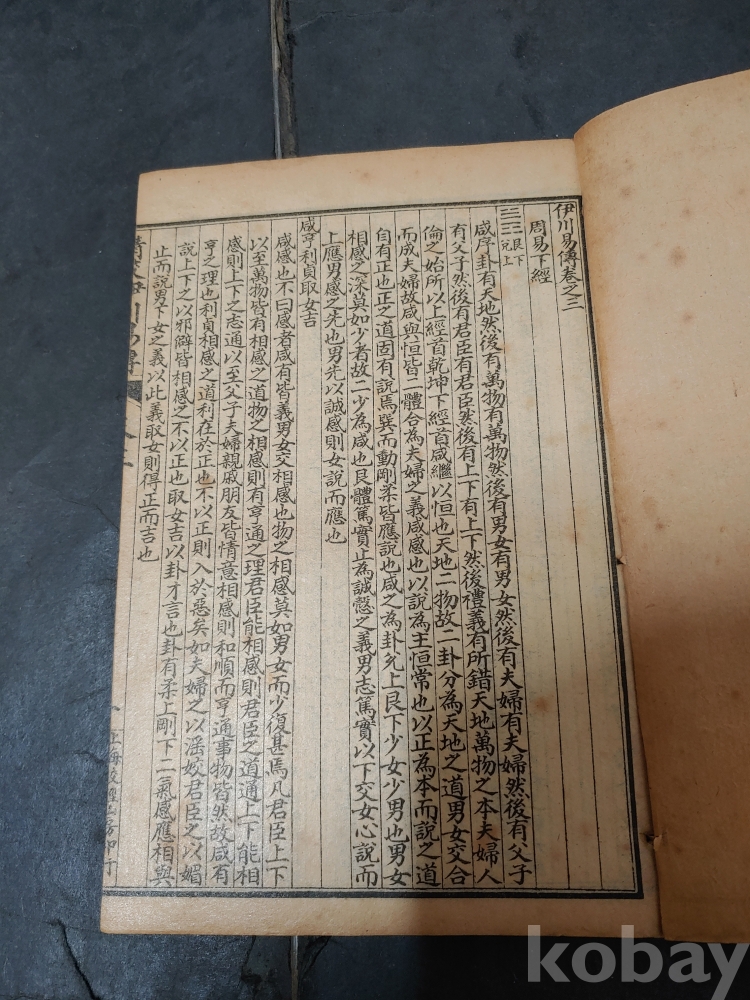 伊川易傳卷之三
周易下經
䷞艮下兌上
咸序卦有天地然後有萬物有萬物然後有男女有男女然後有夫婦有夫婦然後有父子
有父子然後有君臣有君臣然後有上下有上下然後禮義有所錯天地萬物之本夫婦人
倫之始所以上經首乾坤下經首咸繼以恒也天地二物故二卦分為天地之道男女交合
而成夫婦故咸與恒皆二體合為夫婦之義咸感也以說為主恒常也以正為本而說之道
自有正也正之道固有說焉巽而動剛柔皆應說也咸之為卦兌上艮下少女少男也男女
相感之深莫如少者故二少為咸也艮體篤實止為誠慤之義男志篤實以下交女心說而
上應男感之先也男先以誠感則女說而應也
咸亨利貞取女吉
咸感也不曰感者咸有皆義男女交相感也物之相感莫如男女而少復甚焉凡君臣上下
以至萬物皆有相感之道物之相感則有亨通之理君臣能相感則君臣之道通上下能相
感則上下之志通以至父子夫婦親戚朋友皆情意相感則和順而亨通事物皆然故咸有
亨之理也利貞相感之道利在於正也不以正則入於惡矣如夫婦之以淫姣君臣之以媚
說上下之以邪僻皆相感之不以正也取女吉以卦才言也卦有柔上剛下二氣感應相與
止而說男下女之義以此義取女則得正而吉也
kobay